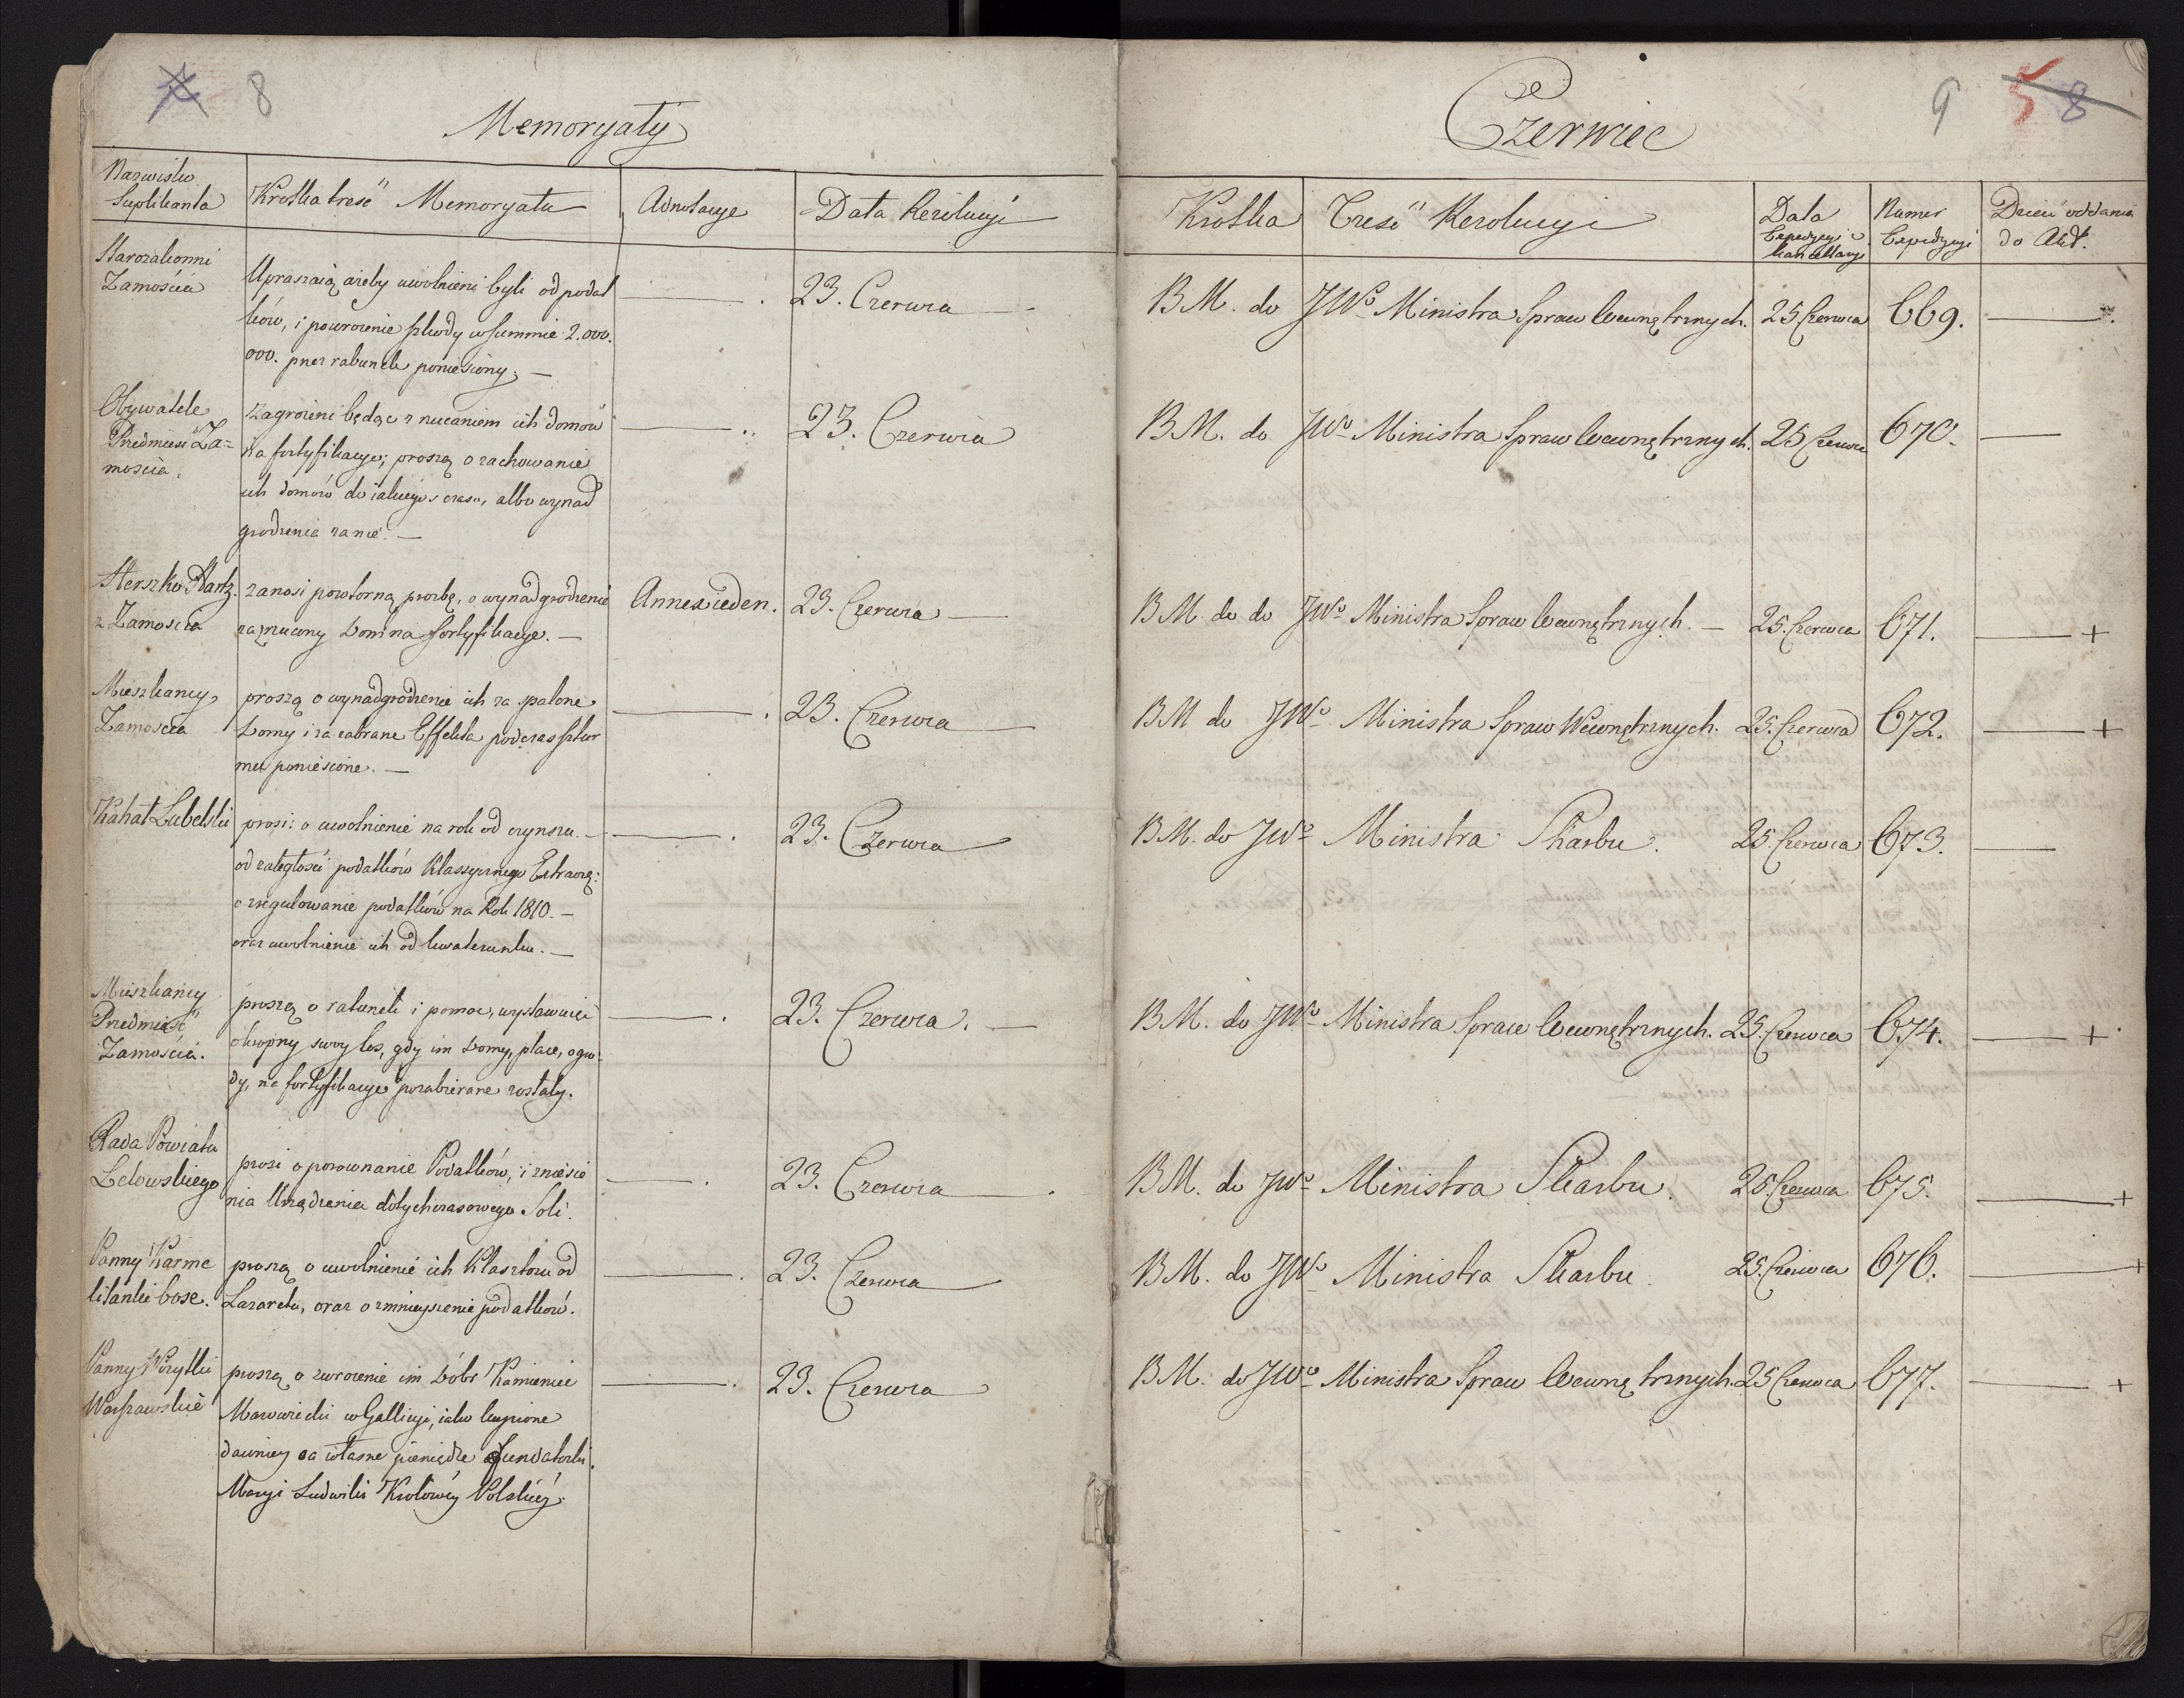 8
Memoryały
Nazwisko
Suplikanta
Krotka treść Memoryału
Adnotacye
Data Rezolucyi
Starozakonni
Zamościa
Upraszaią ażeby uwolnieni byli od podat
ków, i powrocenie szkody w summie 2.000.
000. przez rabunek poniesioney. —
23. Czerwca
Obywatele
Przedmieść Za=
moscia.
zagrożeni będąc zrzucaniem ich domów
na fortyfikacye; proszą o zachowanie
ich domów do iakiegoś czasu, albo wynad
grodzenia za nie. —
23. Czerwca
Herszko Hartz.
z Zamoscia
zanosi powtorną prozbę, o wynadgrodzenie
za zrzucony Dom na fortyfikacye. —
Annexa ieden.
23. Czerwca
Mieszkancy
Zamoscia
proszą o wynadgrodzenie ich za spalone
Domy i za zabrane Effekta podczas sztur
mu poniesione. —
23. Czerwca
Kahał Lubelski
prosi: o uwolnienie na rok od czynszu. —
od zaległości podatków Klassycznego Extraord:
o uregulowanie podatków na Rok 1810. —
oraz uwolnienie ich od kwaterunku. —
23. Czerwca
Mieszkańcy
Przedmieść
Zamościa.
proszą o ratunek i pomoc, wystawuiąc
okropny swoy los, gdy im Domy, place, ogro-
dy, na fortyfikacye pozabierane zostały.
23. Czerwca. —
Rada Powiatu
Lelowskiego
prosi o porownanie Podatków, i zniesie
nia Urządzenia dotychczasowego Soli.
23. Czerwca
Panny Karme
litanki bose.
proszą o uwolnienie ich Klasztoru od
Lazaretu, oraz o zmnieyszenie podatków.
23. Czerwca
Panny Wizytki
Warszawskie
proszą o zwrocenie im Dóbr Kamieniec
Mazowiecki w Gallicyi, iako kupione
dawniey za własne pieniądze Fundatorki.
Maryi Ludwiki Krolowey Polskiey.
23. Czerwca
9 5 8
Czerwiec
Krotka Treść Rezolucyi
Data
Expedycyi z
Kancellaryi
Numer
Expedycyi
Dzień oddania
do Akt.
BM. do JWo Ministra Spraw Wewnętrznych. 25 Czerwca 669.
BM. do JWo Ministra Spraw Wewnętrznych. 25 Czerwca 670.
BM. do do JWo Ministra Spraw Wewnętrznych. — 25. Czerwca 671. +
BM do JWo Ministra Spraw Wewnętrznych. 25. Czerwca 672. +
BM. do JWo Ministra Skarbu. 25. Czerwca 673.
BM. do JWo Ministra Spraw Wewnętrznych. 25. Czerwca 674. +
BM. do JWo Ministra Skarbu. 25. Czerwca 675. +
BM. do JWo Ministra Skarbu. 25. Czerwca 676. +
BM. do JWo Ministra Spraw Wewnętrznych. 25 Czerwca 677. +